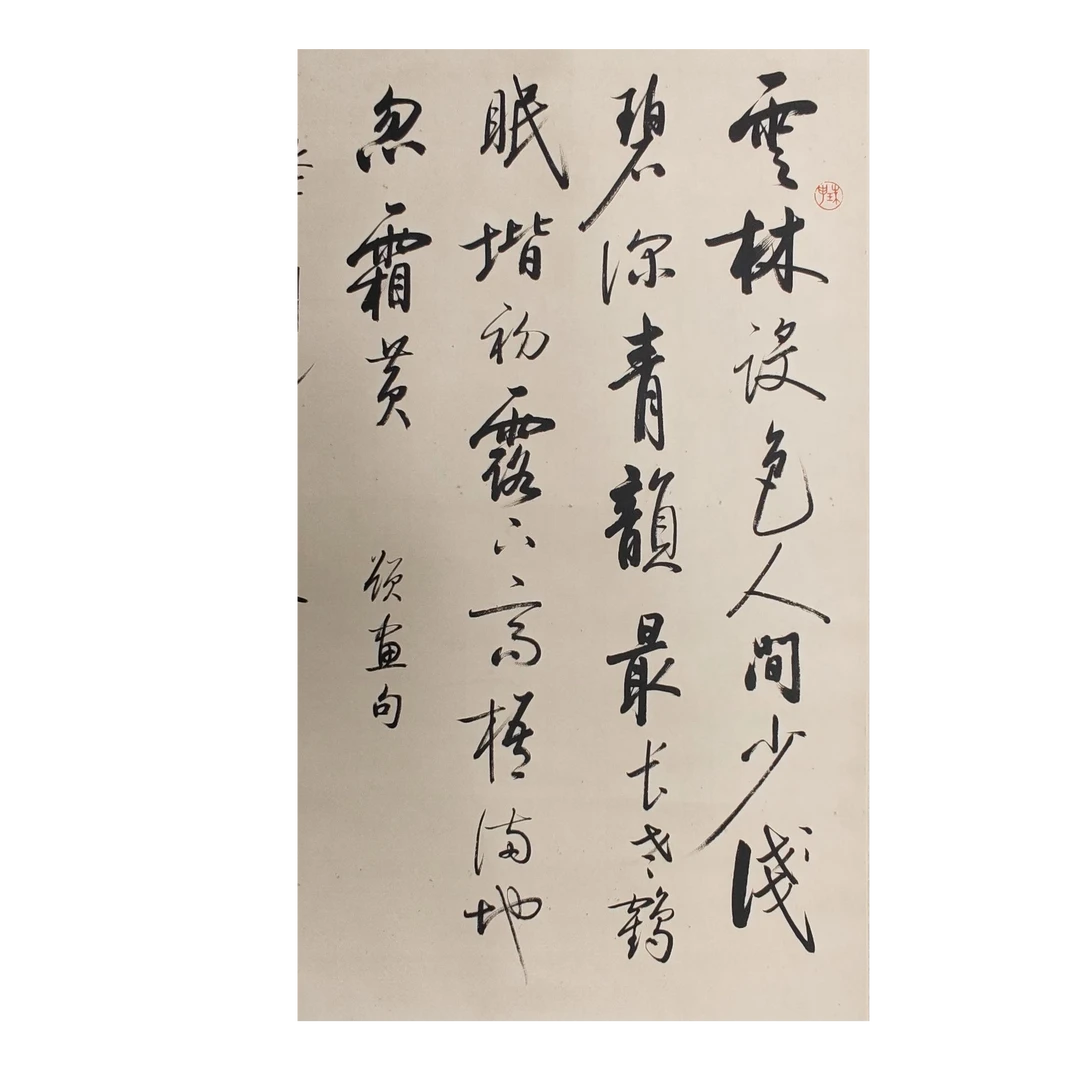 雲林設色人間少淺
碧深青韻最長老鶴
眠堦初露下高梧滿地
忽霜黄
題画句